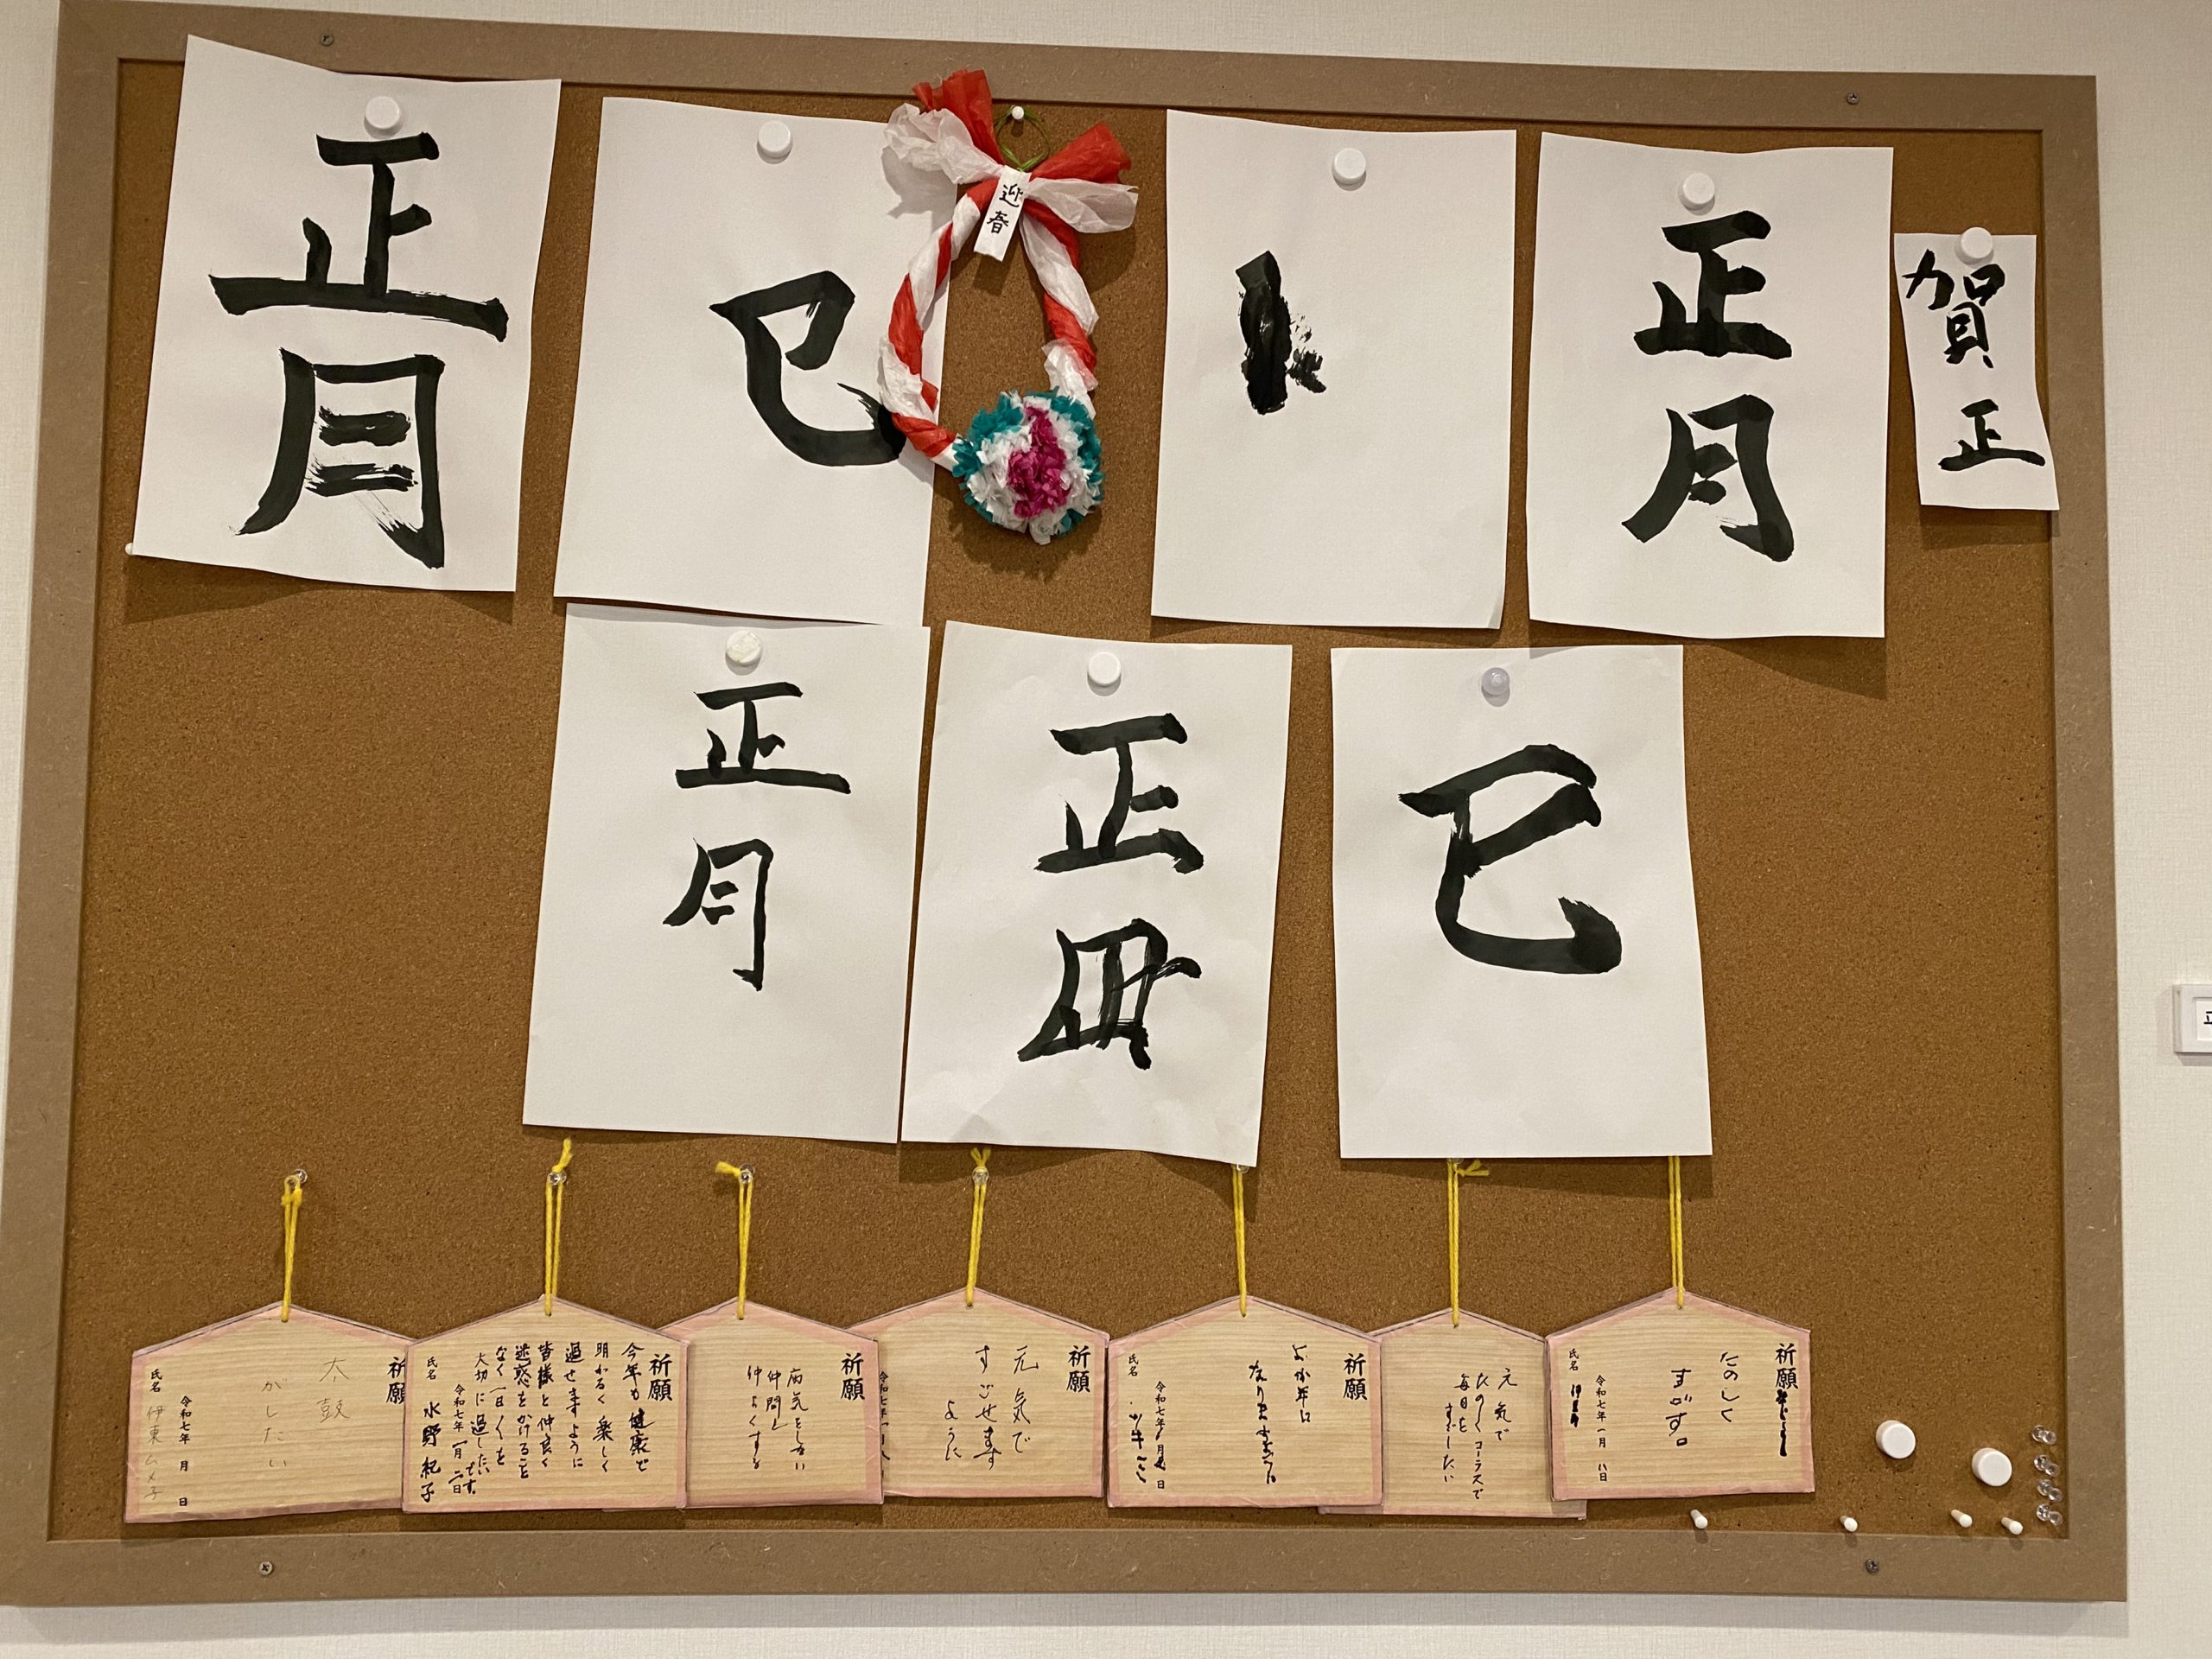 正月
巳
迎春
正月
賀正
正月
正
巳
祈願
太鼓
がしたい
令和七年 月 日
氏名 伊東ムメ子
祈願
今年も健康で
明かるく楽しく
過せますように
皆様と仲良く
迷惑をかけること
なく一日くを
大切に過したい
です。
令和七年 一月 二日
氏名 水野紀子
祈願
病気をしない
仲間と
仲よくする
祈願
元気で
すごせます
ように
祈願
よか年に
なりますように
令和七年 月 日
氏名
元気で
たのしくコーラスで
毎日を
すごしたい
祈願
たのしく
すごす。
令和七年 一月 八日
氏名
正